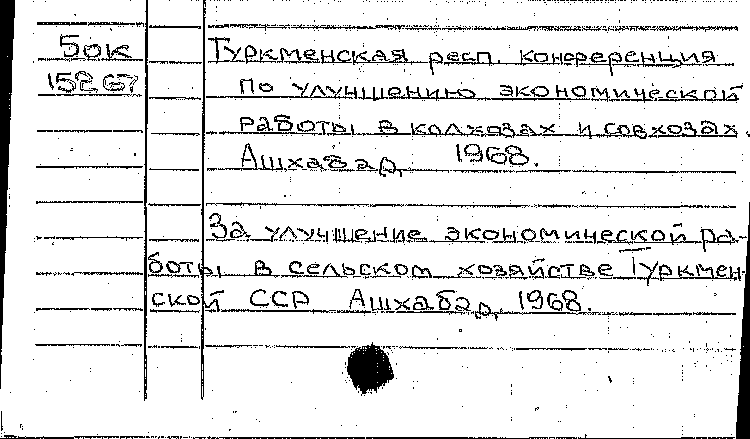 Бок Туркменская респ. конференция
15267 по улучшению экономической
работы в колхозах и совхозах.
Ашхабад, 1968.
За улучшение экономической ра-
боты в сельском хозяйстве Туркмен-
ской ССР Ашхабад, 1968.